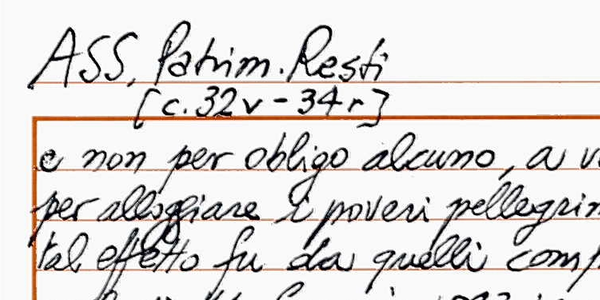 ASS, Patrim. Resti
[c. 32v - 34r]
e non per obligo alcuno, a
per alloggiare i poveri pellegrin
tal effetto fu da quelli comp